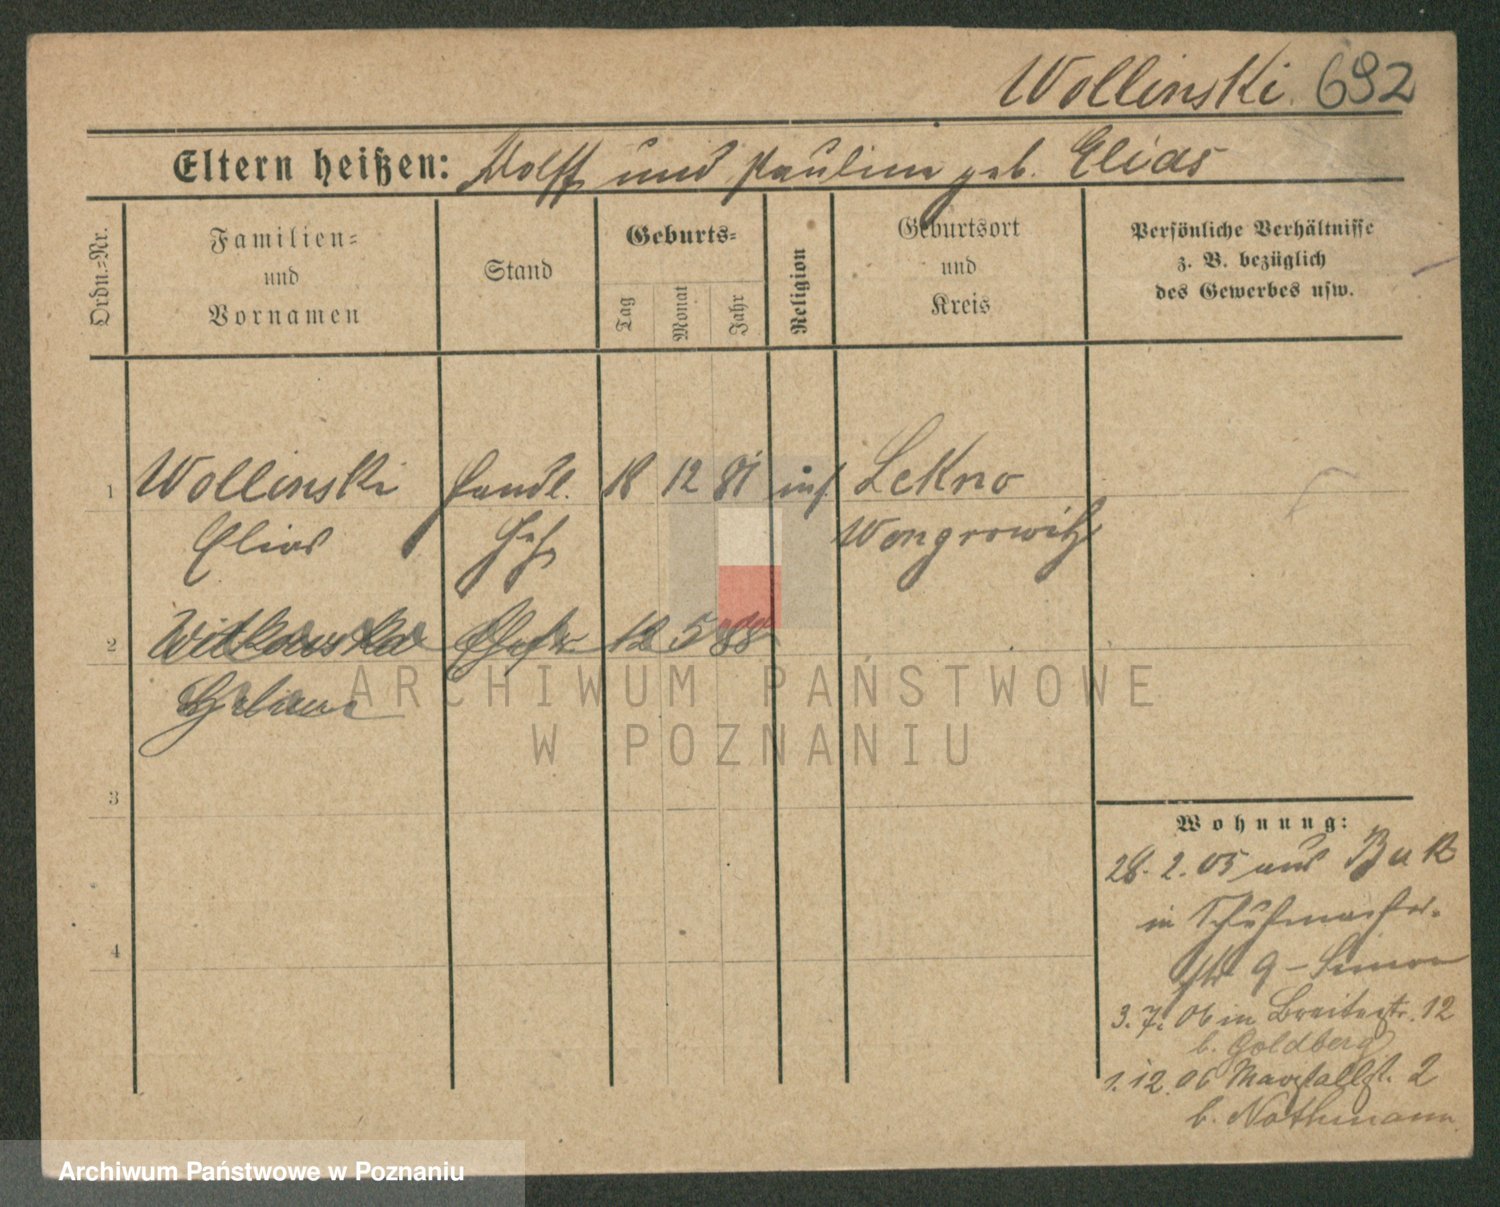 Wollinski. 692
Eltern heißen: Wolff und Paulina geb. Elias
Ordn.=Nr.
Familien=
und
Vornamen
Stand
Geburts=
Tag
Monat
Jahr
Religion
Geburtsort
und
Kreis
Persönliche Verhältnisse
z. B. bezüglich
des Gewerbes usw.
1 Wollinski Handl. 18 12 81 Lekno
Elias Geh. Wongrowitz
2 Witkowska Ehefr. 12 5 88
ARCHIWUM PAŃSTWOWE
W POZNANIU
3
4
Wohnung:
28. 2. 05 aus Buk
in Schuhmacher-
str 9 - Simon
3. 7. 06 in Breitestr. 12
b. Goldberg
1. 12. 06 Marstallst. 2
b. Nothmann
Archiwum Państwowe w Poznaniu